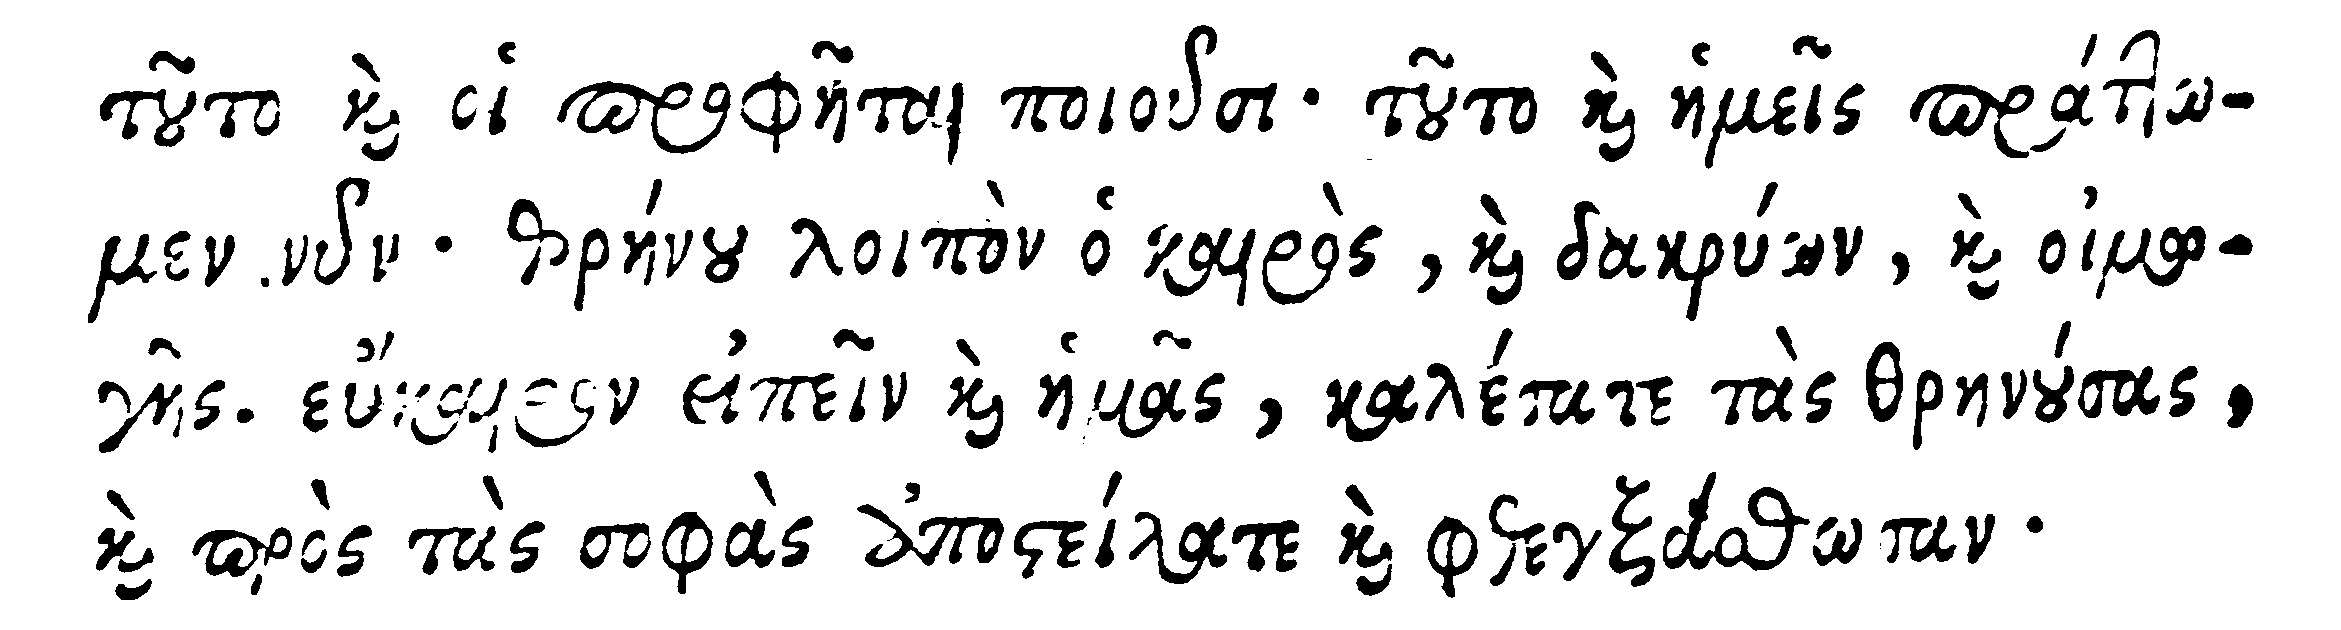 τοῦτο καὶ οἱ προφῆται ποιοῦσι· τοῦτο καὶ ἡμεῖς πράττω-
μεν νῦν· θρήνου λοιπὸν ὁ καιρὸς, καὶ δακρύων, καὶ οἰμω-
γῆς. εὔκαιρον εἰπεῖν καὶ ἡμᾶς, καλέσατε τὰς θρηνούσας,
καὶ πρὸς τὰς σοφὰς ἀποστείλατε καὶ φθεγξάσθωσαν·